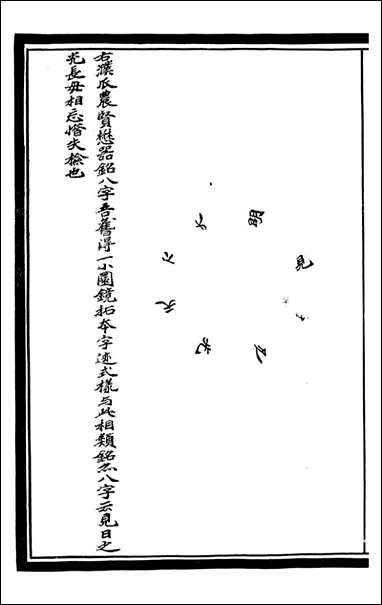 見之光天下大明
右漢瓜農賢懋器銘八字吾舊得一小圜鏡拓本字迹式樣与此相類銘亦八字云見日之
光長毋相忘惜失檢也